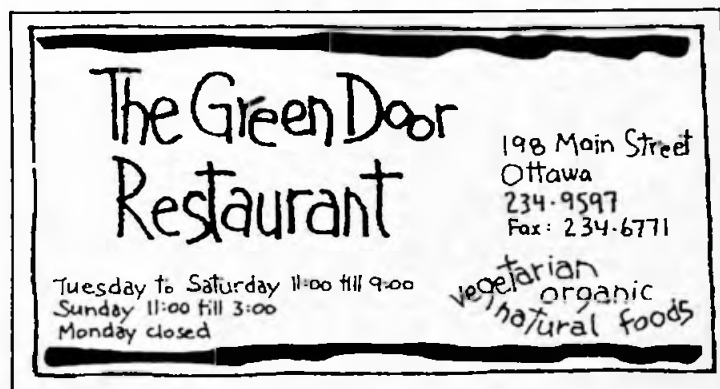 The Green Door
Restaurant
198 Main Street
Ottawa
234-9597
Fax: 234-6771
Tuesday to Saturday 11:00 till 9:00
Sunday 11:00 till 3:00
Monday closed
vegetarian
organic
natural foods